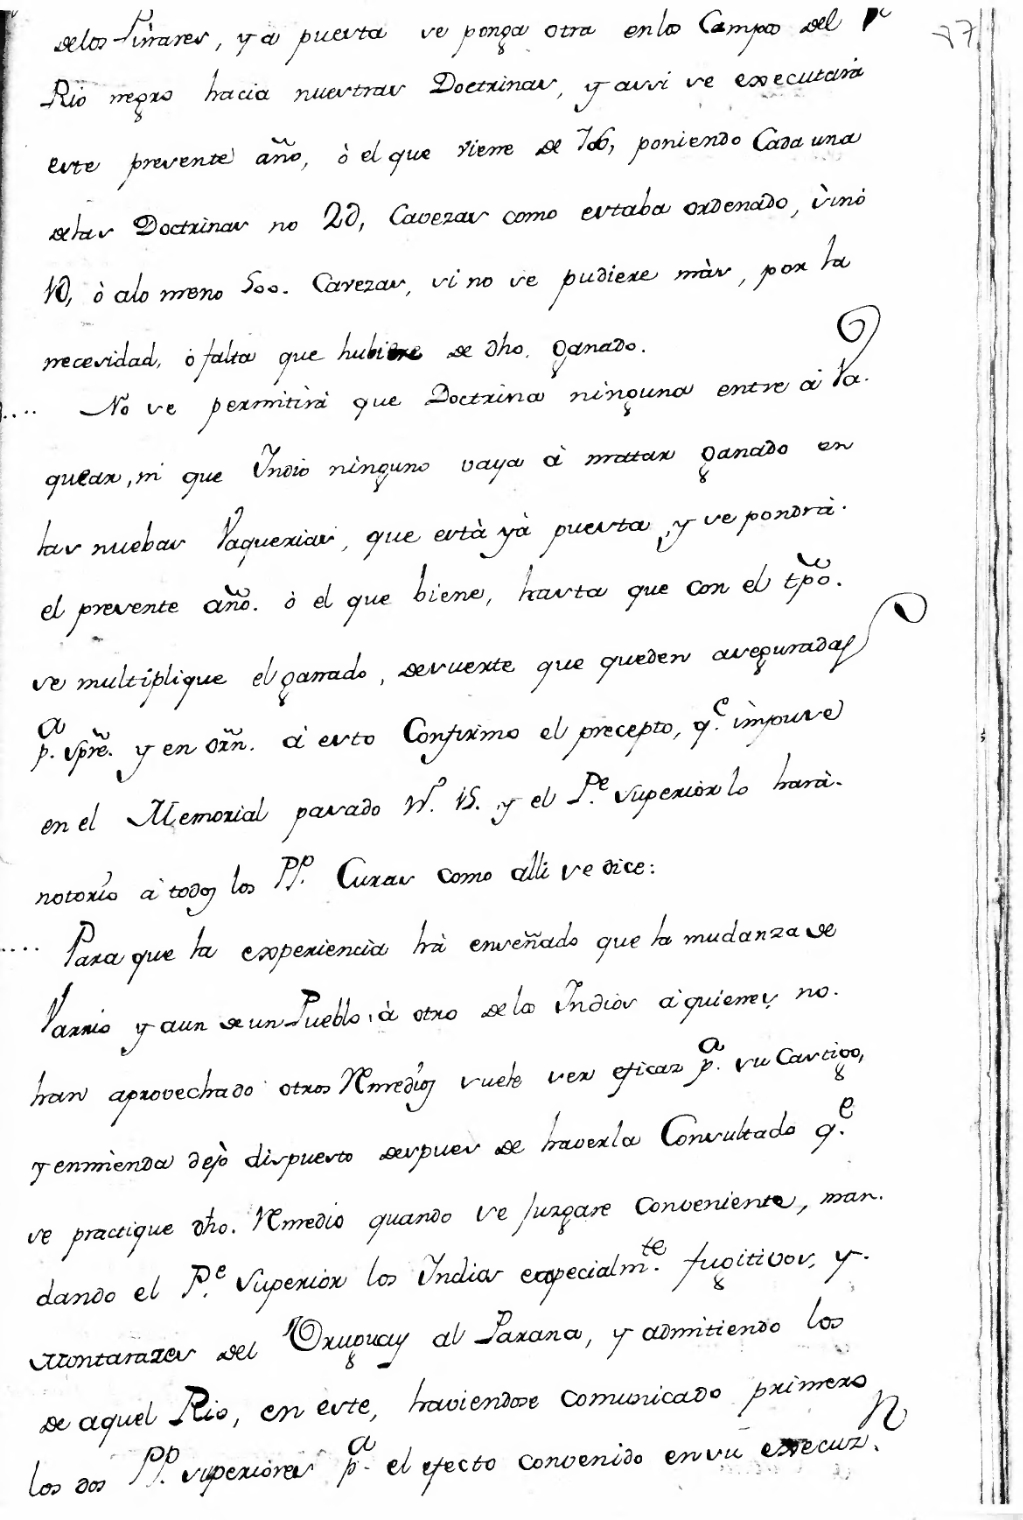 delos Pinares, y a puesta se ponga otra enlos Campos del
77
Rio negro hacia nuestras Doctrinas, y assi se executarà
este presente año, ò el que viene de 706, poniendo Cada una
delas Doctrinas no 2∂, Cavezas como estaba ordenado, sinó
1∂, ò alo meno 500. Cavezas, si no se pudiere màs, por la
necesidad, ò falta que hubiere de dho. ganado.
No se permitirà que Doctrina ninguna entre à Va-
quear, ni que Indio ninguno vaya à matar ganado en
las nuebas Vaquerias, que està yà puesta, y se pondrà
el presente año. ò el que biene, hasta que con el tpõ.
se multiplique el ganado, desuerte que queden aseguradas
p.ª spre. y en orn. à esto Confirmo el precepto, q.e impuse
en el Memorial pasado nº. 15. y el P.e Superior lo harà
notorio à todos los PP. Curas como alli se dice:
Para que la experiencia hà enseñado que la mudanza de
Varrio y aun de un Pueblo à otro de los Indios à quienes no
han aprovechado otros Remedios suele ser eficaz p.ª su Castigo,
y enmienda dejò dispuesto despues de haverla Consultado q.e
se practique dho. Remedio quando se juzgare conveniente, man-
dando el P.e Superior los Indios especialm.te fugitivos, y
Montarazes del Uruguay al Parana, y admitiendo los
de aquel Rio, en este, haviendose comunicado primero
los dos PP. superiores p.ª el efecto convenido en su execuz.n